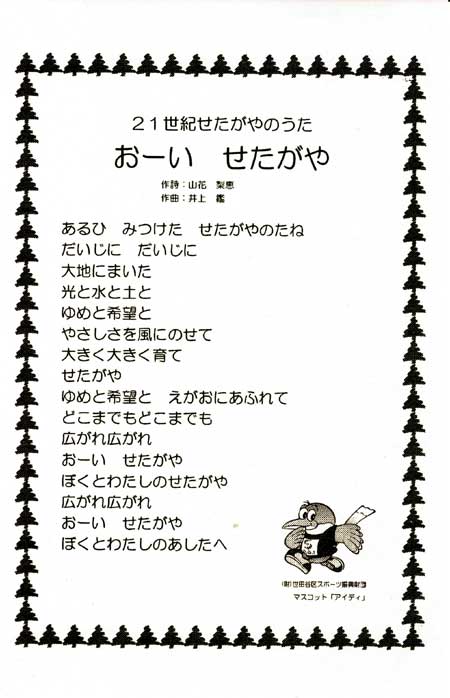 21世紀せたがやのうた
おーい　せたがや
作詩：山花　梨恵
作曲：井上　鑑
あるひ　みつけた　せたがやのたね
だいじに　だいじに
大地にまいた
光と水と土と
ゆめと希望と
やさしさを風にのせて
大きく大きく育て
せたがや
ゆめと希望と　えがおにあふれて
どこまでもどこまでも
広がれ広がれ
おーい　せたがや
ぼくとわたしのせたがや
広がれ広がれ
おーい　せたがや
ぼくとわたしのあしたへ
(財)世田谷区スポーツ振興財団
マスコット「アイディ」